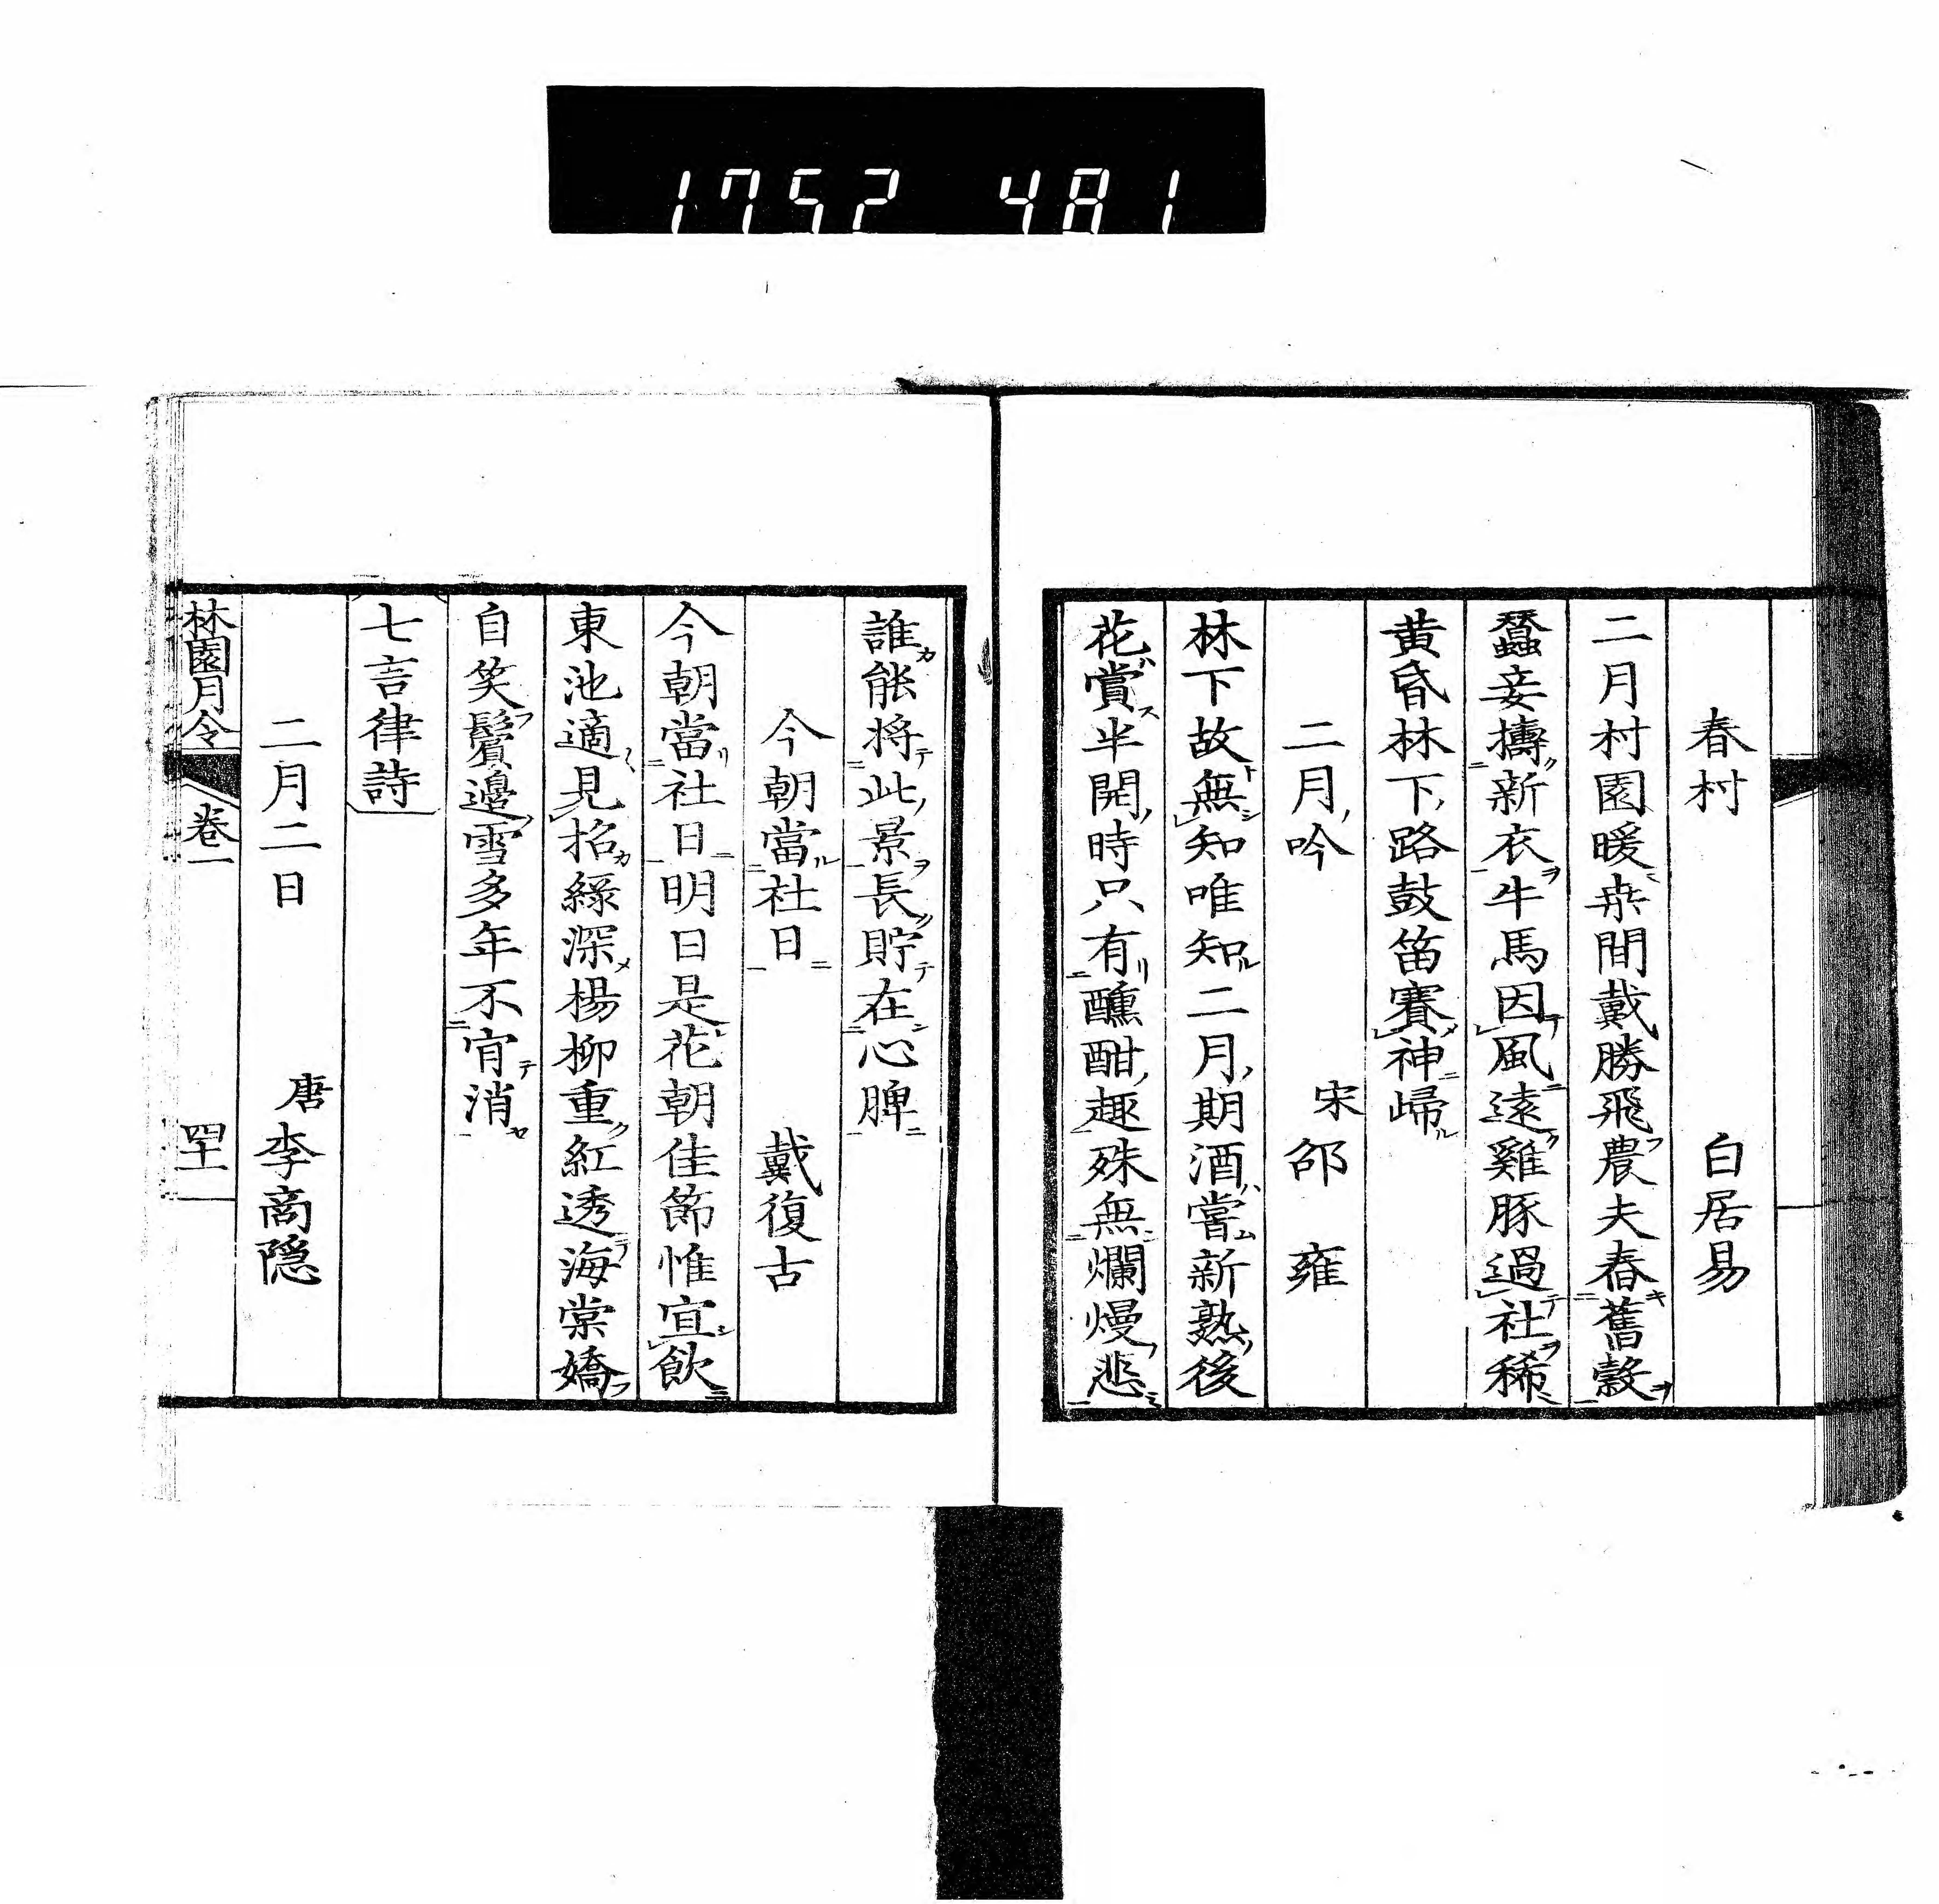 1752 481
春村 白居易
二月村園暖桒間戴勝飛農夫舂舊穀
蠶妾擣新衣牛馬因風遠雞豚過社稀
黄昏林下路鼓笛賽神歸
二月吟 宋邵雍
林下故無知唯知二月期酒嘗新熟後
花賞半開時只有醺酣趣殊無爛熳悲
誰能將此景長貯在心脾
今朝當社日 戴復古
今朝當社日明日是花朝佳節惟宜飲
東池適見招綠深楊柳重紅透海棠嬌
自笑鬢邊雪多年不肯消
七言律詩
二月二日 唐李商隱
林園月令 卷一 罕二